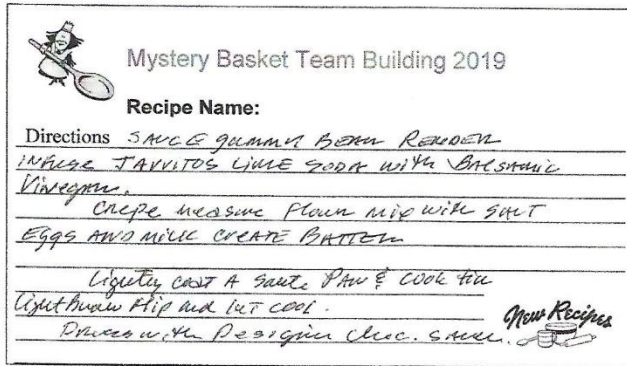 Mystery Basket Team Building 2019
Recipe Name:
Directions SAUCE gummy BEAR RENDER
INFUSE JARVITOS LIME SODA with BALSAMIC
Vinegar.
Crepe measure Flour mix with SALT
Eggs AND MILK CREATE BATTER
Lightly coat A Saute PAN & COOK till
light brown Flip and let cool.
with Designer Choc. SAUCE.
New Recipes